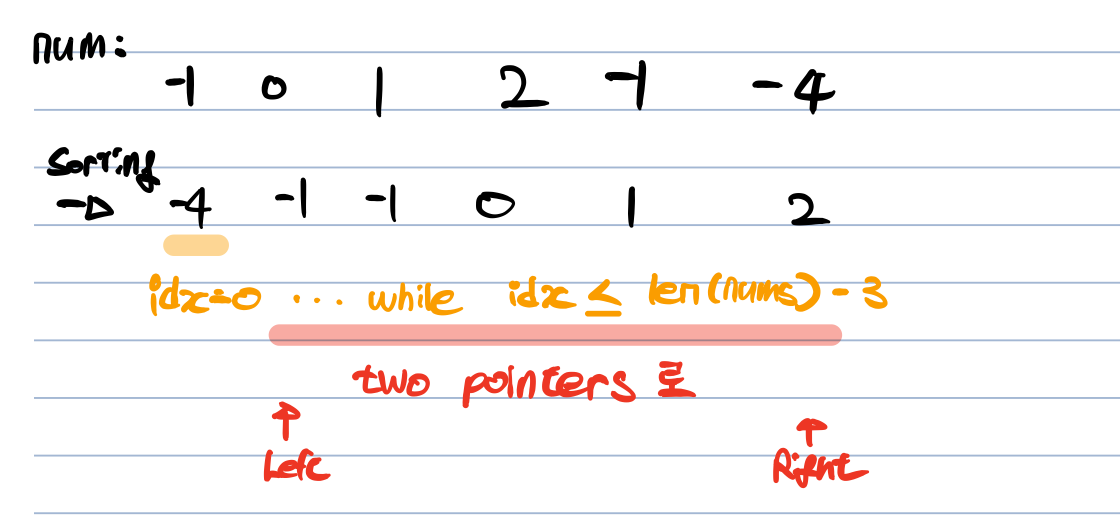 num:
-1 0 1 2 -1 -4
Sorting
→ -4 -1 -1 0 1 2
idx=0 ... while idx ≤ len(nums) - 3
two pointers 로
↑ ↑
Left Right